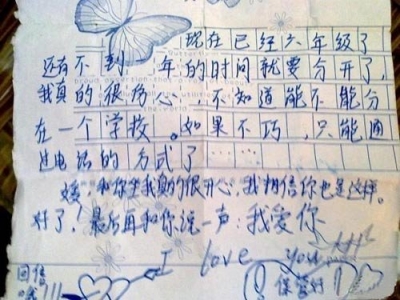 现在已经六年级了
还有不到一年的时间就要分开了,
我真的很伤心,不知道能不能分
在一个学校。如果不巧,只能通
过电话的方式了……
和你坐我真的很开心,我相信你也是这样。
对了!最后再和你说一声:我爱你
I love you
回信
哦!!!
保管好!